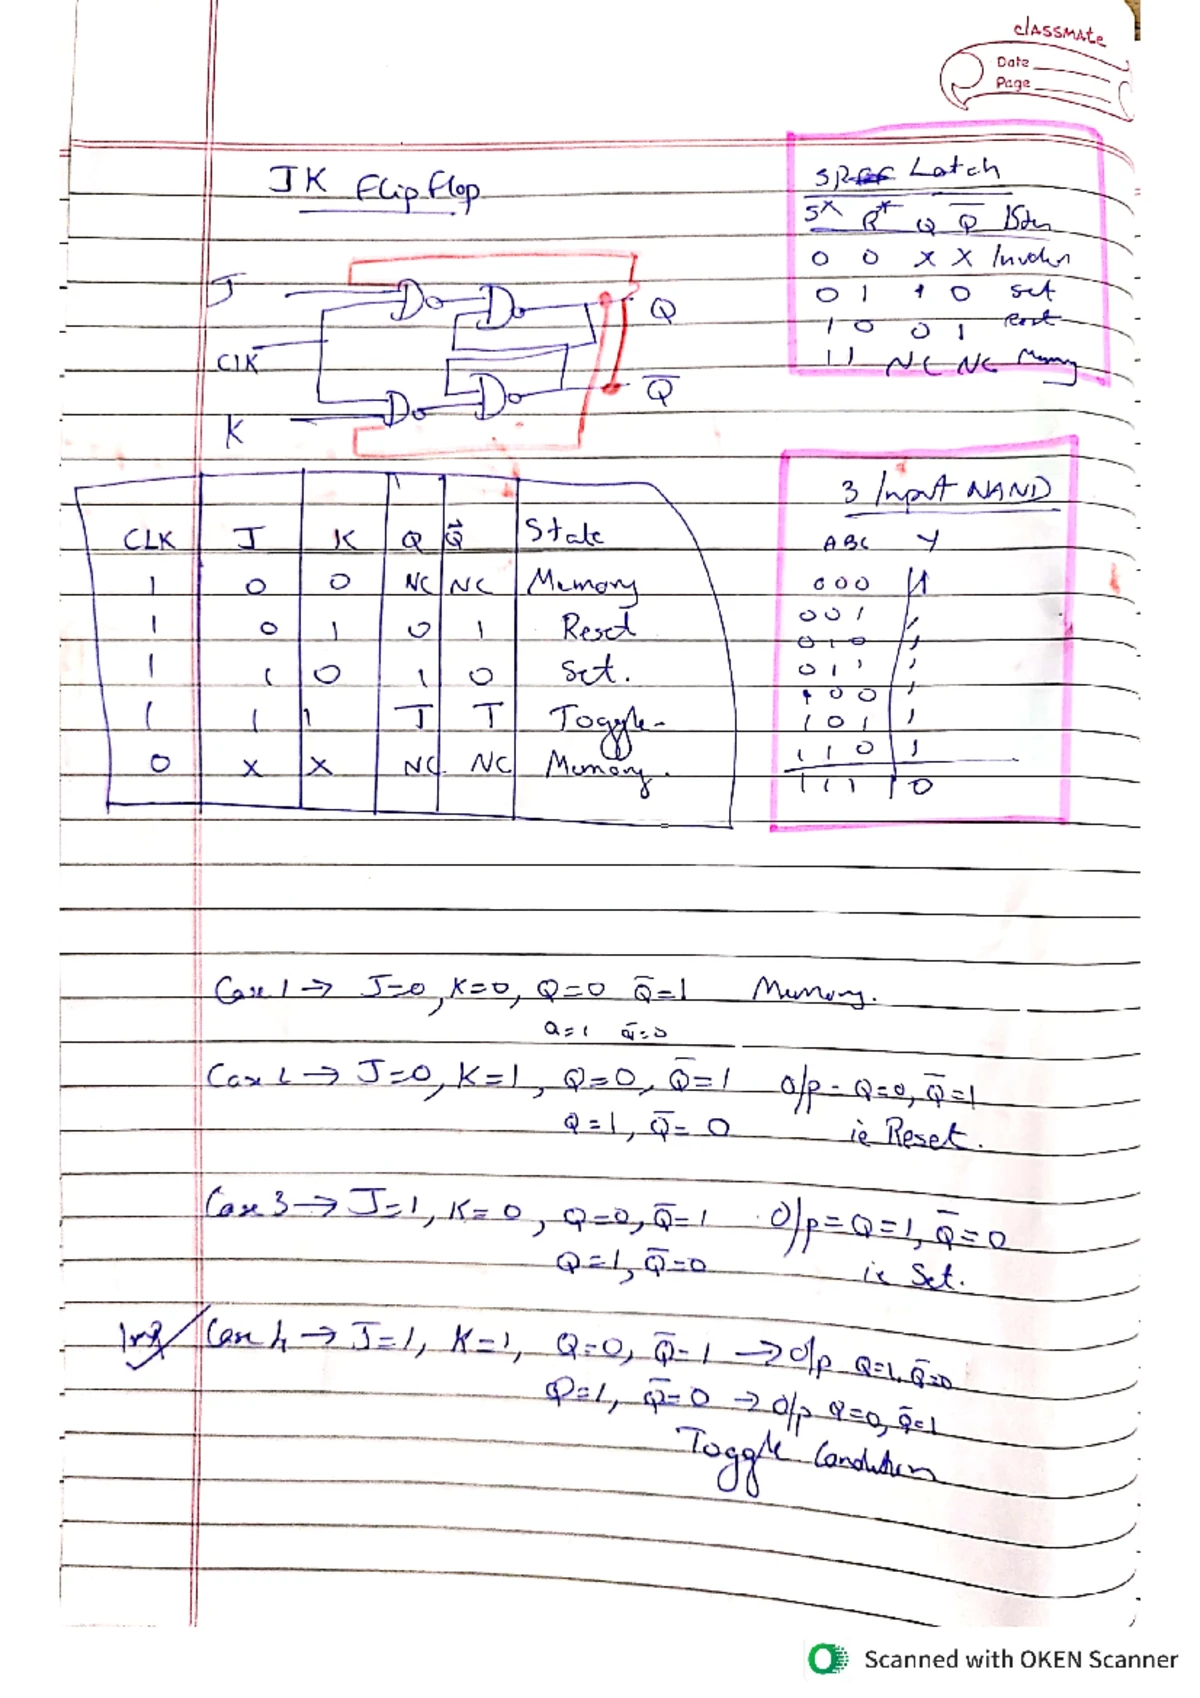 classmate
Date
Page
JK Flip Flop
SR Latch
S* R* Q Q̅
0 0 x x Invalid
0 1 1 0 set
1 0 0 1 Reset
1 1 NC NC Memory
J
CLK
K
Q
Q̅
3 Input NAND
ABC Y
000 1
001 1
010 1
011 1
100 1
101 1
110 1
111 0
CLK J K Q Q̅ State
1 0 0 NC NC Memory
1 0 1 0 1 Reset
1 1 0 1 0 Set.
1 1 1 T T Toggle-
0 x x NC NC Memory.
Case 1 → J=0, K=0, Q=0 Q̅=1 Memory.
Q=1 Q̅=0
Case 2 → J=0, K=1, Q=0, Q̅=1 O/p - Q=0, Q̅=1
Q=1, Q̅=0 ie Reset.
Case 3 → J=1, K=0, Q=0, Q̅=1 O/p = Q=1, Q̅=0
Q=1, Q̅=0 ie Set.
Imp Case 4 → J=1, K=1, Q=0, Q̅=1 → O/p Q=1, Q̅=0
Q=1, Q̅=0 → O/p Q=0, Q̅=1
Toggle Condition
Scanned with OKEN Scanner